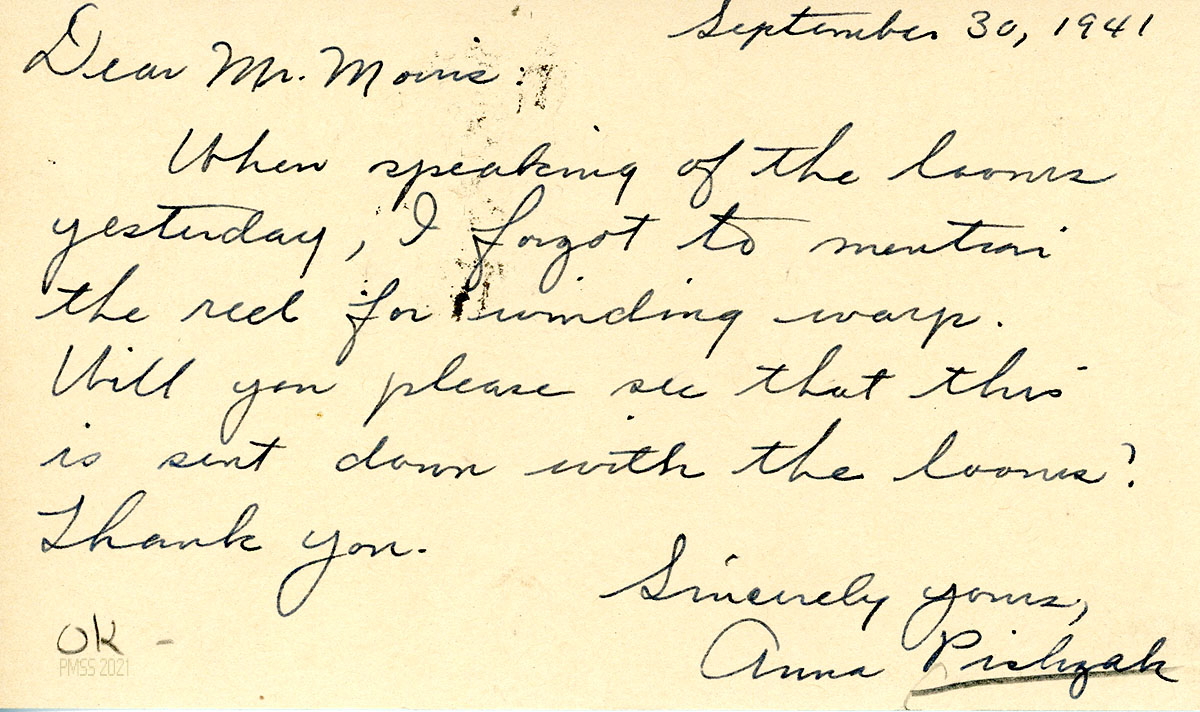 September 30, 1941
Dear Mr. Morris:
When speaking of the looms
yesterday, I forgot to mention
the reel for winding warp.
Will you please see that this
is sent down with the looms?
Thank you.
Sincerely yours,
Anna Pishzak
OK -
PMSS 2021